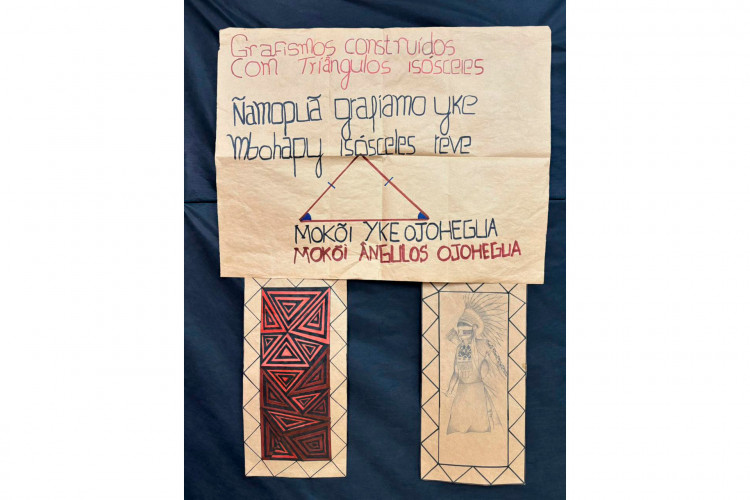 Grafismos construídos
com Triângulos isósceles
Ñamopuã grafiamo yke
mbohapy isósceles reve
MOKÕI YKE OJOHEGUA
MOKÕI ÂNGULOS OJOHEGUA